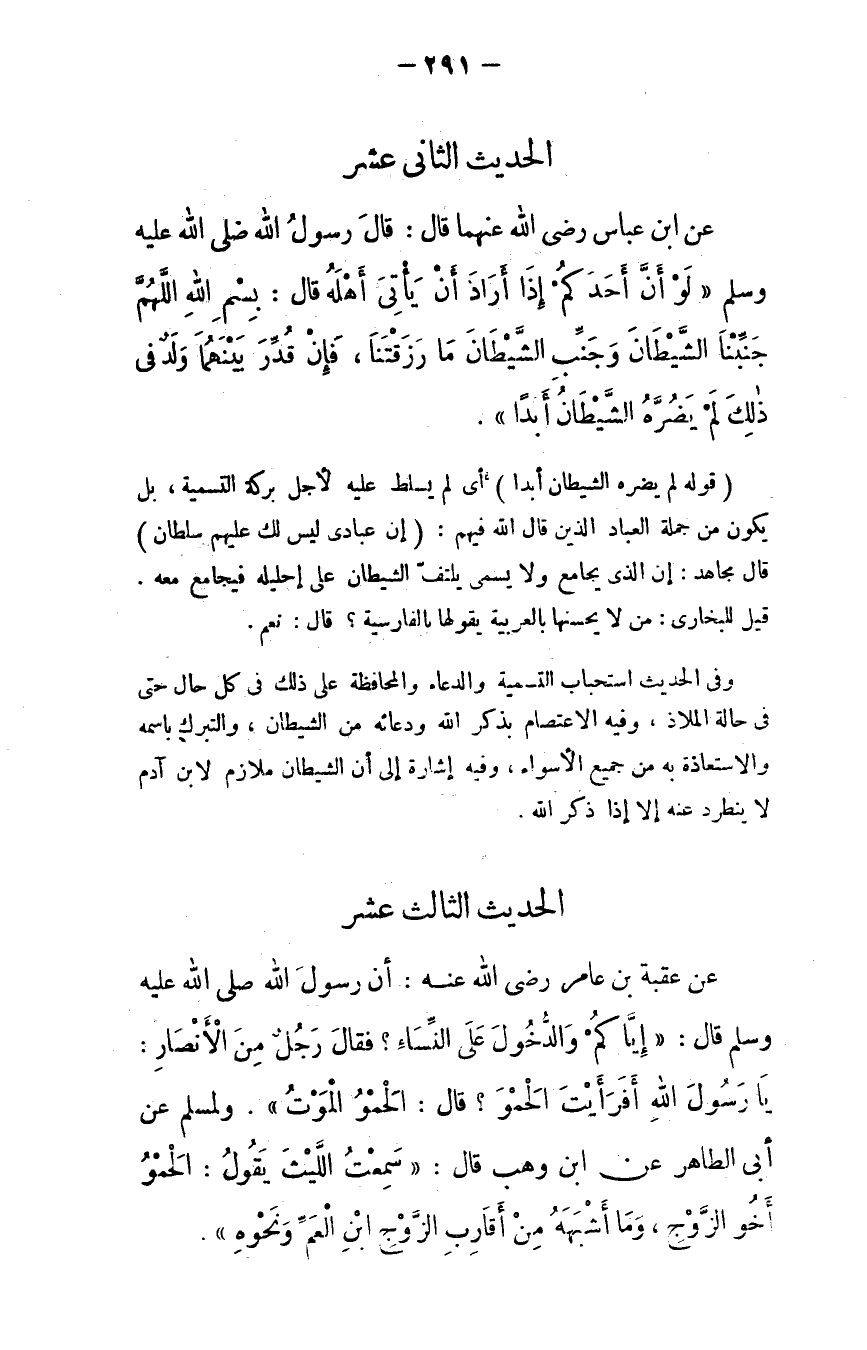 – ٢٩١ –
الحديث الثانى عشر
عن ابن عباس رضى الله عنهما قال : قالَ رسولُ الله صلى الله عليه
وسلم « لَوْ أَنَّ أَحَدَكُمْ إِذَا أَرَادَ أَنْ يَأْتِىَ أَهْلَهُ قال : بِسْمِ اللهِ اللَّهُمَّ
جَنِّبْنَا الشَّيْطَانَ وَجَنِّبِ الشَّيْطَانَ مَا رَزَقْتَنَا ، فَإِنْ قُدِّرَ بَيْنَهُمَا وَلَدٌ فى
ذٰلِكَ لَمْ يَضُرَّهُ الشَّيْطَانُ أَبَدًا » .
( قوله لم يضره الشيطان أبدا ) أى لم يسلط عليه لأجل بركة التسمية ، بل
يكون من جملة العباد الذين قال الله فيهم : ( إن عبادى ليس لك عليهم سلطان )
قال مجاهد : إن الذى يجامع ولا يسمى يلتفّ الشيطان على إحليله فيجامع معه .
قيل للبخارى : من لا يحسنها بالعربية يقولها بالفارسية ؟ قال : نعم .
وفى الحديث استحباب التسمية والدعاء والمحافظة على ذلك فى كل حال حتى
فى حالة الملاذ ، وفيه الاعتصام بذكر الله ودعائه من الشيطان ، والتبرك باسمه
والاستعاذة به من جميع الأسواء ، وفيه إشارة إلى أن الشيطان ملازم لابن آدم
لا ينطرد عنه إلا إذا ذكر الله .
الحديث الثالث عشر
عن عقبة بن عامر رضى الله عنه : أن رسولَ الله صلى الله عليه
وسلم قال : « إِيَّاكُمْ وَالدُّخُولَ عَلَى النِّسَاءِ ؟ فقالَ رَجُلٌ مِنَ الْأَنْصَارِ :
يَا رَسُولَ اللهِ أَفَرَأَيْتَ الْحَمْوَ ؟ قال : الْحَمْوُ الْمَوْتُ » . ولمسلم عن
أبى الطاهر عن ابن وهب قال : « سَمِعْتُ اللَّيْثَ يَقُولُ : الْحَمْوُ
أَخُو الزَّوْجِ ، وَمَا أَشْبَهَهُ مِنْ أَقَارِبِ الزَّوْجِ ابْنِ الْعَمِّ وَنَحْوِهِ » .